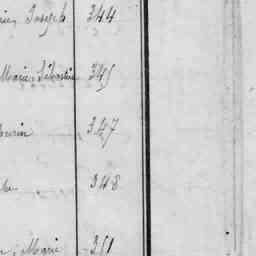 Joseph 344
Marie, Sébastien 345
347
348
Marie 351